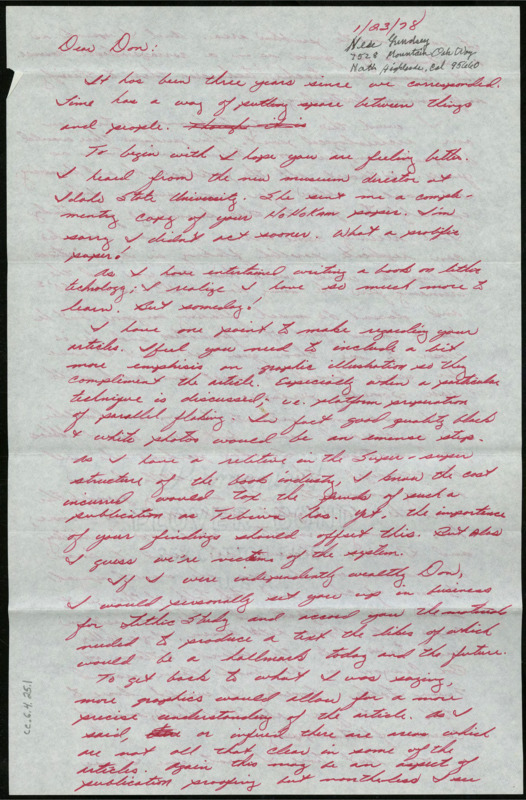 1/23/78
7528 Mountain Oak Way
North Highlands, Cal 95660
Dear Don:
It has been three years since we corresponded.
Time has a way of putting space between things
and people. Though it is
To begin with I hope you are feeling better.
I heard from the new museum director at
Idaho State University. She sent me a compli-
mentary copy of your HoHoKam paper. I'm
sorry I didn't act sooner. What a prolific
paper!
As I have entertained writing a book on lithic
techology; I realize I have so much more to
learn. But someday!
I have one point to make regarding your
articles. I feel you need to include a bit
more emphisis on graphic illustration so they
compliment the article. Especially when a particular
technique is discussed; i.e. platform preparation
of parallel flaking. In fact good quality black
& white photos would be an emense step.
As I have a relative in the super-super
structure of the book industry, I know the cost
incurred would tax the funds of such a
publication as Tebiwa has. Yet, the importance
of your findings should offset this. But alas
I guess we're victims of the system.
If I were independently wealthy Don,
I would personally set you up in business
for Lithic Study and accord you the materials
needed to produce a text the likes of which
would be a hallmark today and the future.
To get back to what I was saying,
more graphics would allow for a more
precise understanding of the article. As I
said, or infered, there are areas which
are not all that clear in some of the
articles. Again this may be an aspect of
publication proofing but nontheless I see
cc.6.4.25.1